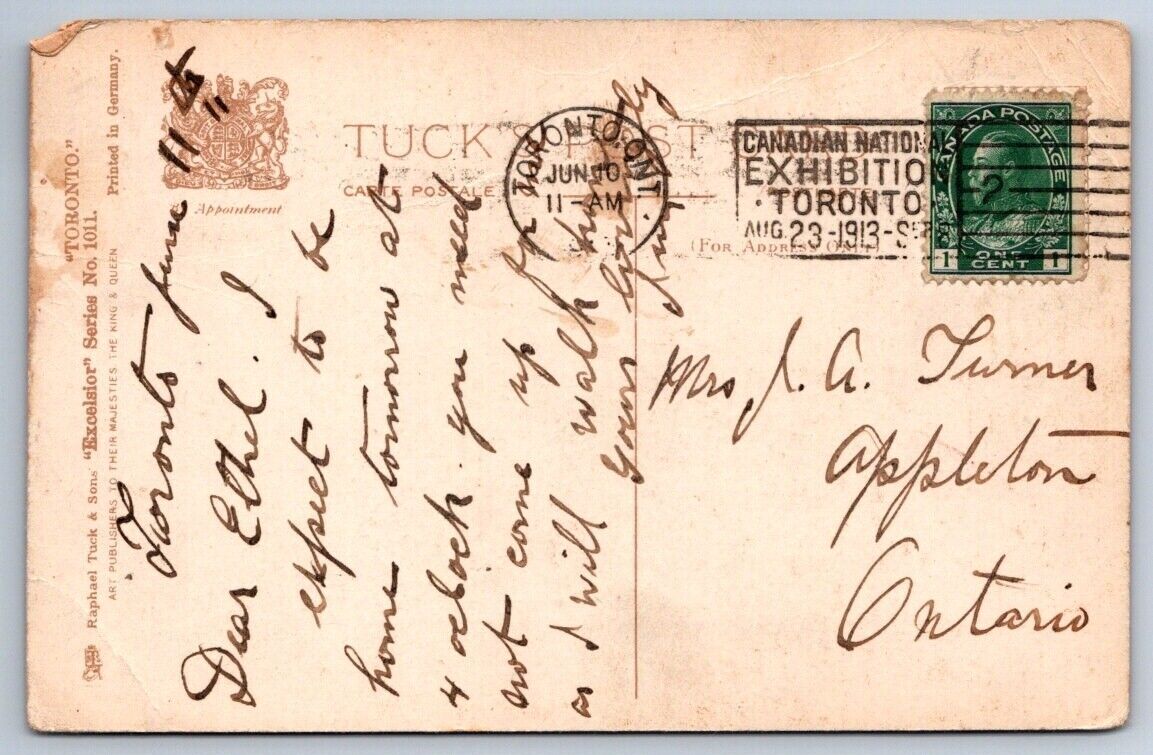 "TORONTO."
Raphael Tuck & Sons "Excelsior" Series No. 1011. Printed in Germany.
ART PUBLISHERS TO THEIR MAJESTIES THE KING & QUEEN
Appointment
TUCK'S POST
CARTE POSTALE
(For Address Only)
TORONTO, ONT.
JUN 10
11 - AM
CANADIAN NATIONAL
EXHIBITION
· TORONTO
AUG. 23-1913-SEP
2
CANADA POSTAGE
1 ONE CENT 1
Toronto June 11th
Dear Ethel. I
expect to be
home tomorrow at
4 oclock you need
not come up for me
as I will walk home
Yours lovingly
Mrs J. A. Turner
Appleton
Ontario